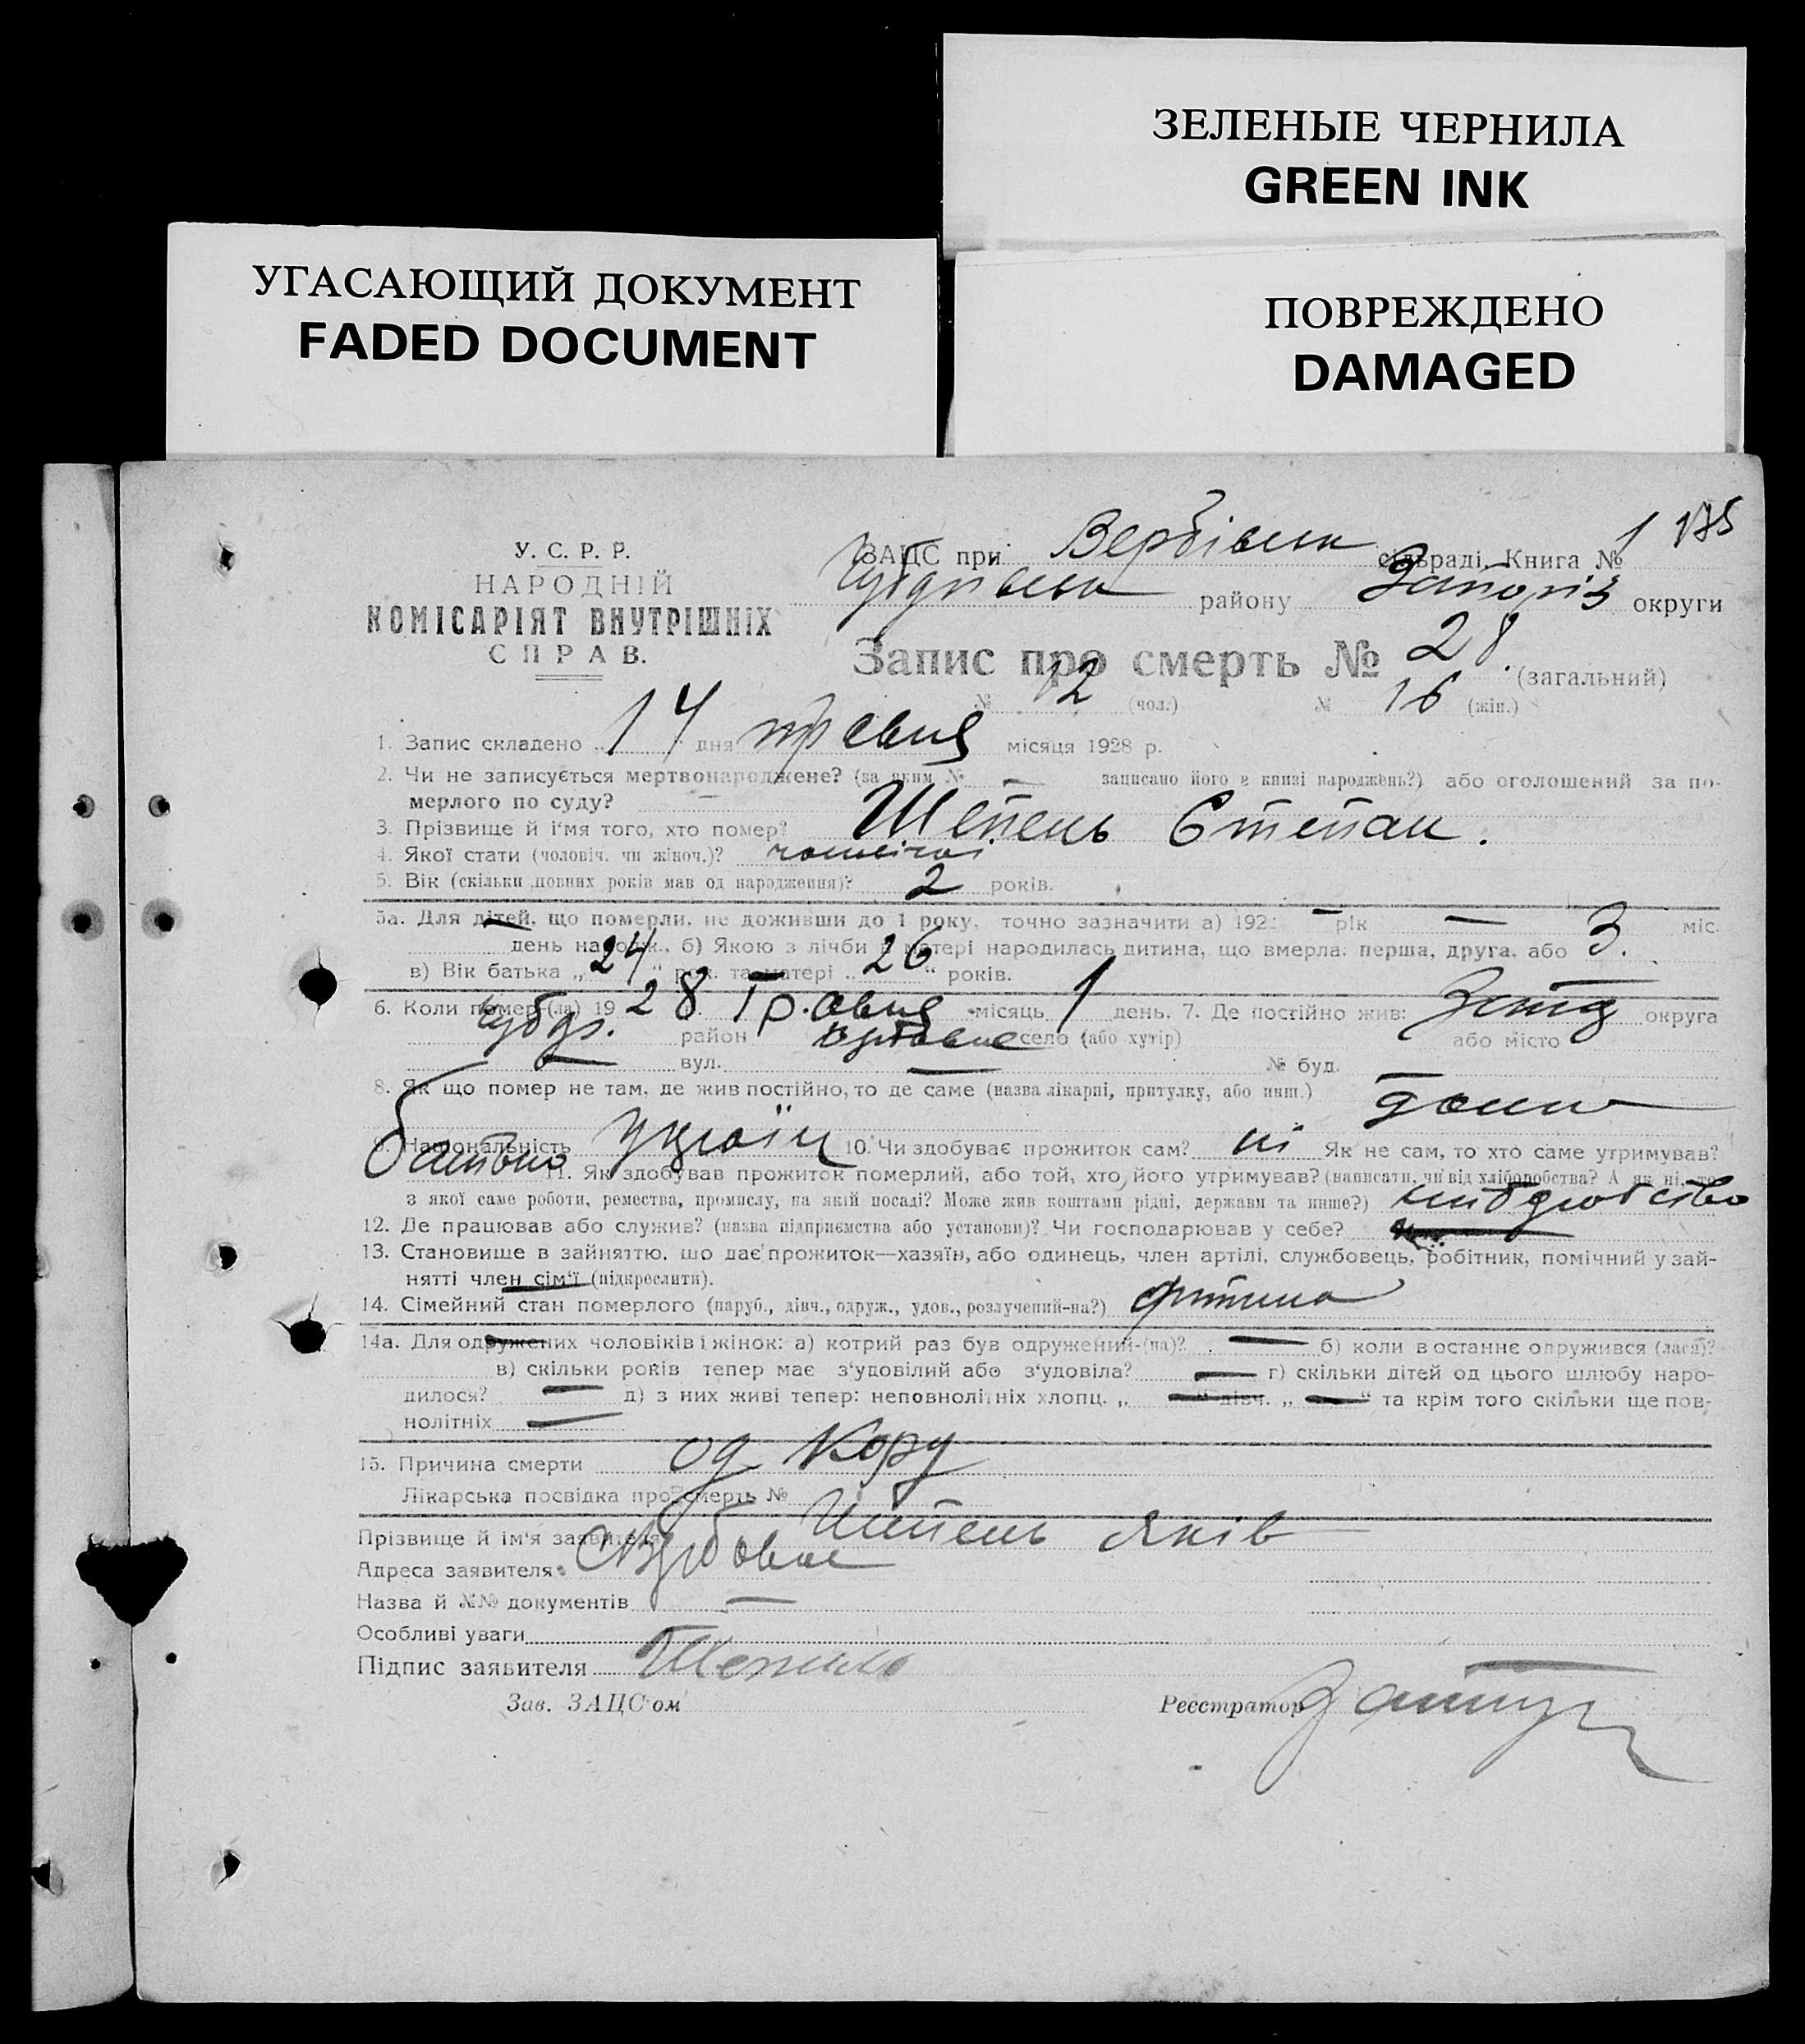 ЗЕЛЕНЫЕ ЧЕРНИЛА
GREEN INK
УГАСАЮЩИЙ ДОКУМЕНТ
FADED DOCUMENT
ПОВРЕЖДЕНО
DAMAGED
У. С. Р. Р.
НАРОДНІЙ
КОМІСАРІЯТ ВНУТРІШНІХ
СПРАВ.
175
ЗАЦС при Вербівськ сільраді, Книга № 1
району Запоріз округи
Запис про смерть № 28 (загальний)
№ 12 (чол.) № 16 (жін.)
1. Запис складено 14 дня травня місяця 1928 р.
2. Чи не записується мертвонароджене? (за яким № — записано його в книзі народжень?) або оголошений за по-
мерлого по суду? —
3. Прізвище й і'мя того, хто помер? Шепень Степан.
4. Якої стати (чоловіч. чи жіноч.)?
5. Вік (скільки повних років мав од народження)? 2 років.
5а. Для дітей, що померли, не доживши до 1 року, точно зазначити а) 192 — рік — міс.
день народж., б) Якою з лічби в матері народилась дитина, що вмерла: перша, друга, або 3.
в) Вік батька „ 24 “ рок. та матері „ 26 “ років.
6. Коли помер (ла) 19 28 р. Травня місяць 1 день. 7. Де постійно жив: округа
район село (або хутір) або місто
— вул. — № буд. —
8. Як що помер не там, де жив постійно, то де саме (назва лікарні, притулку, або инш.) дома
9. Національність україн 10. Чи здобуває прожиток сам? ні Як не сам, то хто саме утримував?
батько 11. Як здобував прожиток померлий, або той, хто його утримував? (написати, чи від хліборобства? А як ні, то
з якої саме роботи, ремества, промислу, на якій посаді? Може жив коштами рідні, держави та инше?)
12. Де працював або служив? (назва підприємства або установи)? Чи господарював у себе?
13. Становище в зайняттю, що дає прожиток—хазяїн, або одинець, член артілі, службовець, робітник, помічний у зай-
нятті член сім'ї (підкреслити).
14. Сімейний стан померлого (паруб., дівч., одруж., удов., розлучений-на?) дитина
14а. Для одружених чоловіків і жінок: а) котрий раз був одружений-(на)? — б) коли востаннє одружився (лася)?
в) скільки років тепер має з'удовілий або з'удовіла? — г) скільки дітей од цього шлюбу наро-
дилося? — д) з них живі тепер: неповнолітніх хлопц. „ — “ дівч. „ — “ та крім того скільки ще пов-
нолітніх —
15. Причина смерти од кору
Лікарська посвідка про смерть №
Прізвище й ім'я заявителя Шепень Яків
Адреса заявителя
Назва й №№ документів —
Особливі уваги
Підпис заявителя
Зав. ЗАЦС'ом Реєстратор